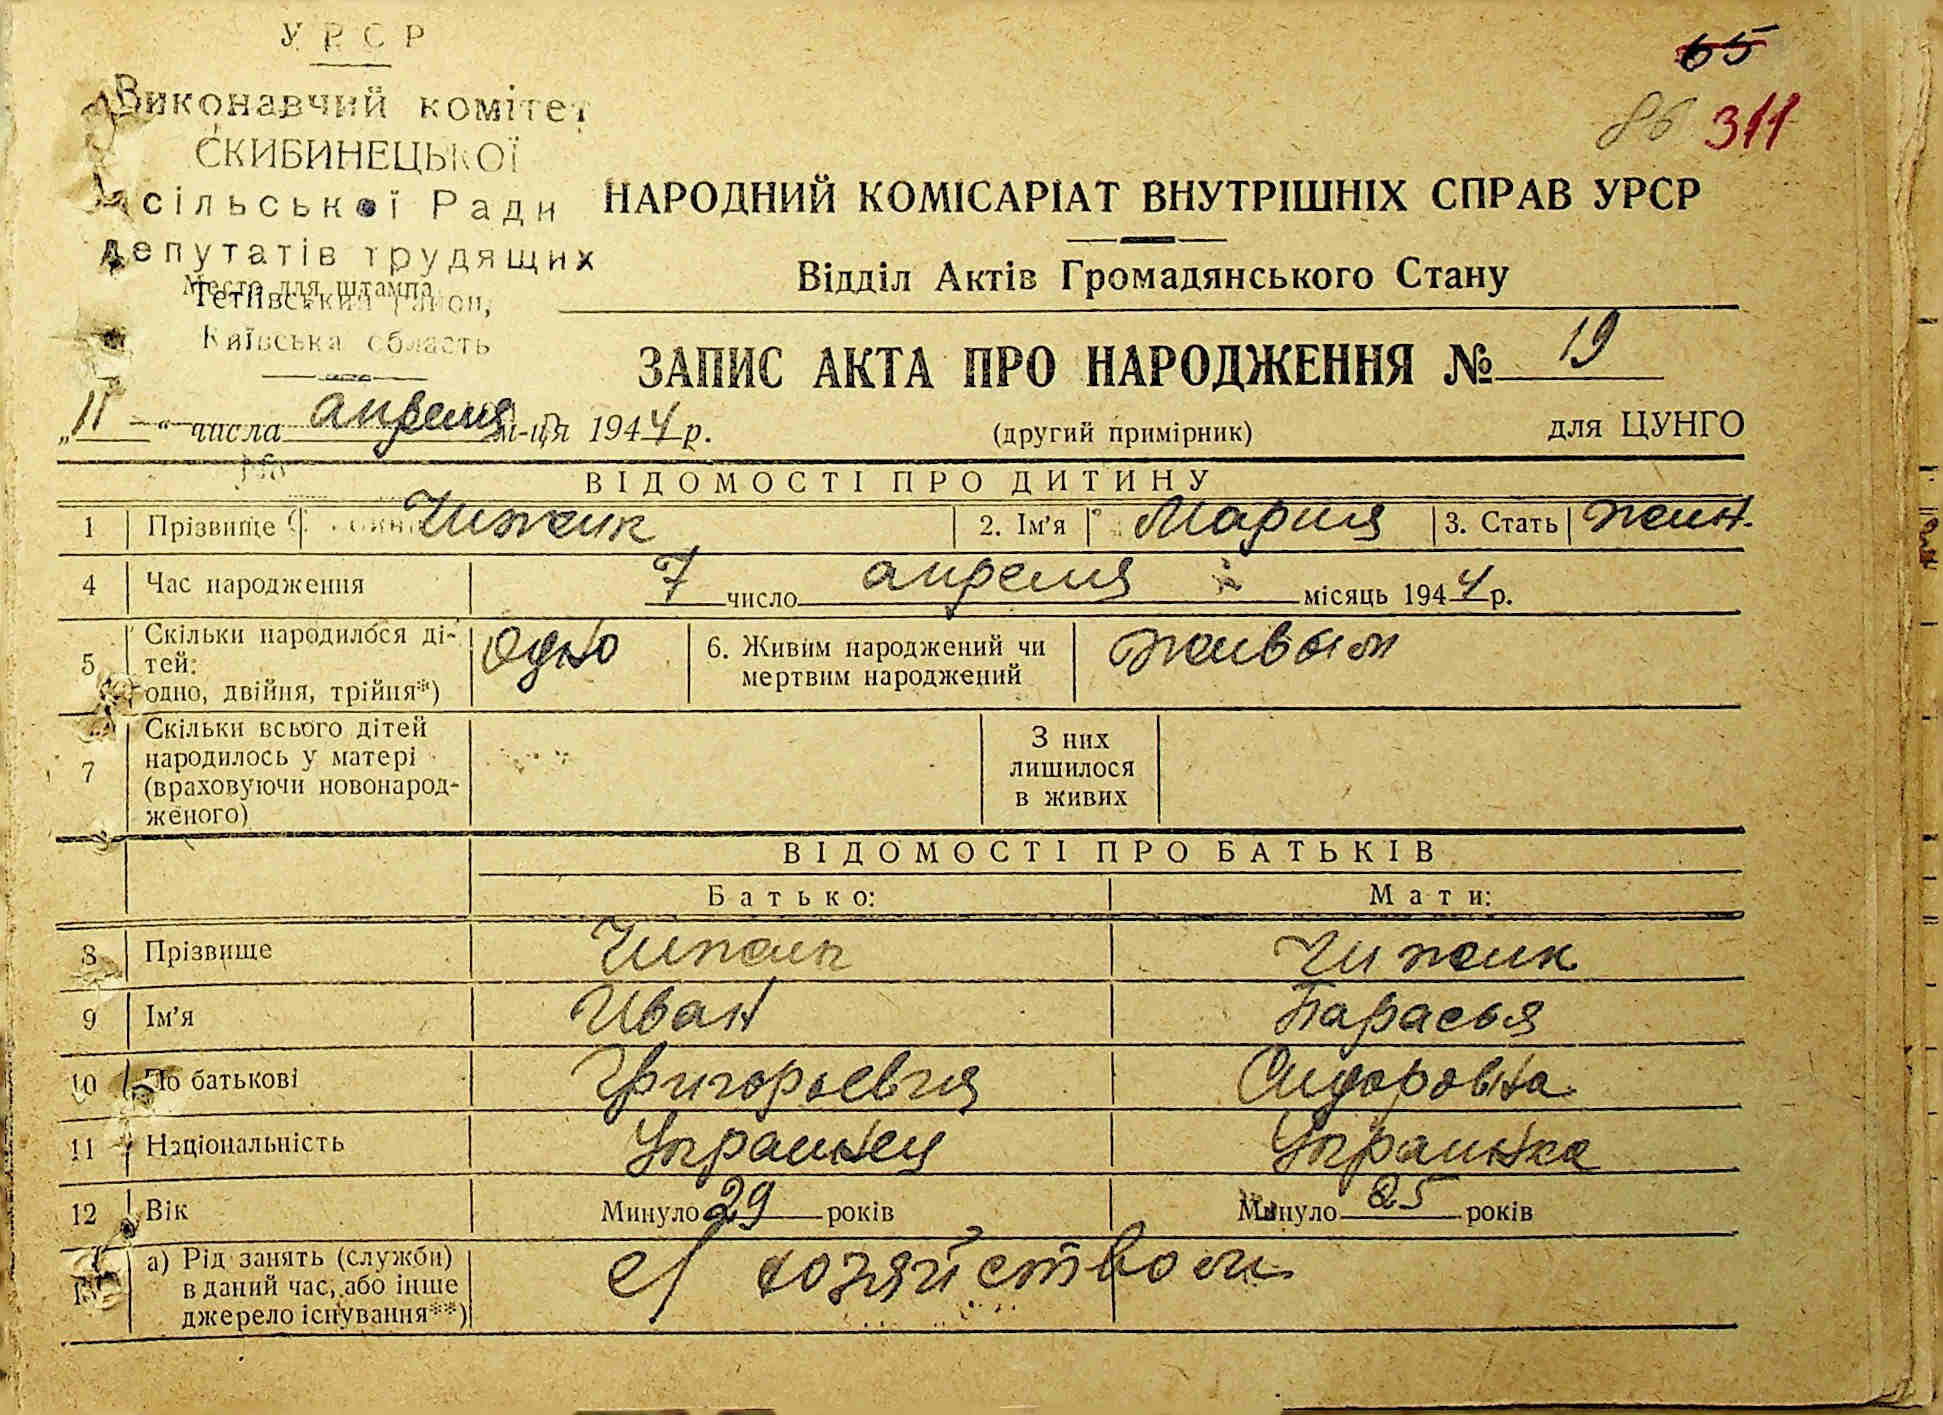 УРСР
Виконавчий комітет
СКИБИНЕЦЬКОЇ
сільської Ради
депутатів трудящих
Место для штампа
Тетіївський район,
Київська область
65
86 311
НАРОДНИЙ КОМІСАРІАТ ВНУТРІШНІХ СПРАВ УРСР
Відділ Актів Громадянського Стану
ЗАПИС АКТА ПРО НАРОДЖЕННЯ № 19
„11“ числа апреля м-ця 1944 р.
(другий примірник)
для ЦУНГО
ВІДОМОСТІ ПРО ДИТИНУ
1 Прізвище Чижик 2. Ім'я Мария 3. Стать жен.
4 Час народження 7 число апреля місяць 1944 р.
5 Скільки народилося ді-
тей:
одно, двійня, трійня*) одно 6. Живим народжений чи
мертвим народжений живым
7 Скільки всього дітей
народилось у матері
(враховуючи новонарод-
женого)
З них
лишилося
в живих
ВІДОМОСТІ ПРО БАТЬКІВ
Батько: Мати:
8 Прізвище Чижик Чижик
9 Ім'я Иван Парасья
10 По батькові Григорьевич Сидоровна
11 Національність Украинец Украинка
12 Вік Минуло 29 років Минуло 25 років
13 а) Рід занять (служби)
в даний час, або інше
джерело існування**) с/ хозяйством